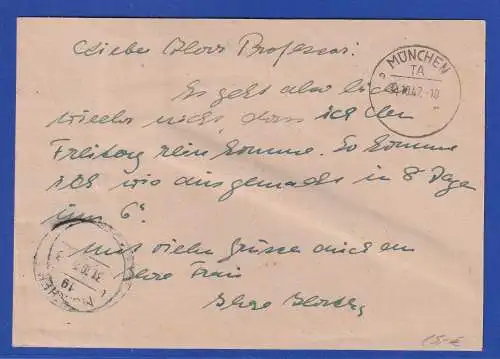 Lieber Herr Professor!
Es geht also
wieder nicht, dass ich den
Freitag rein komme. So komme
ich wie ausgemacht in 8 Tagen
um 6ʰ.
Mit vielen Grüssen auch an
Ihre Frau
Ihre
MÜNCHEN
TA
10.47.-18
MÜNCHEN
31.10.
19
15,-€